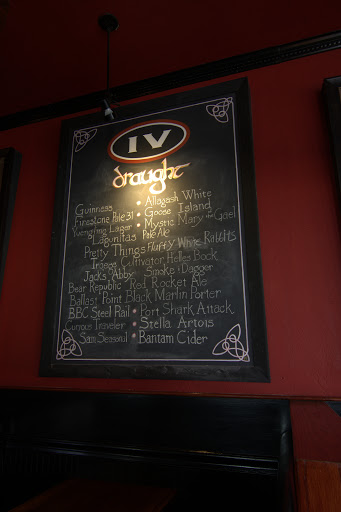 IV
draught
Guinness • Allagash White
Firestone Pale 31 • Goose Island
Yuengling Lager • Mystic Mary of the Gael
Lagunitas Pale Ale
Pretty Things Fluffy White Rabbits
Troegs Cultivator Helles Bock
Jacks Abby Smoke & Dagger
Bear Republic Red Rocket Ale
Ballast Point Black Marlin Porter
BBC Steel Rail • Port Shark Attack
Curious Traveler • Stella Artois
Sam Seasonal • Bantam Cider